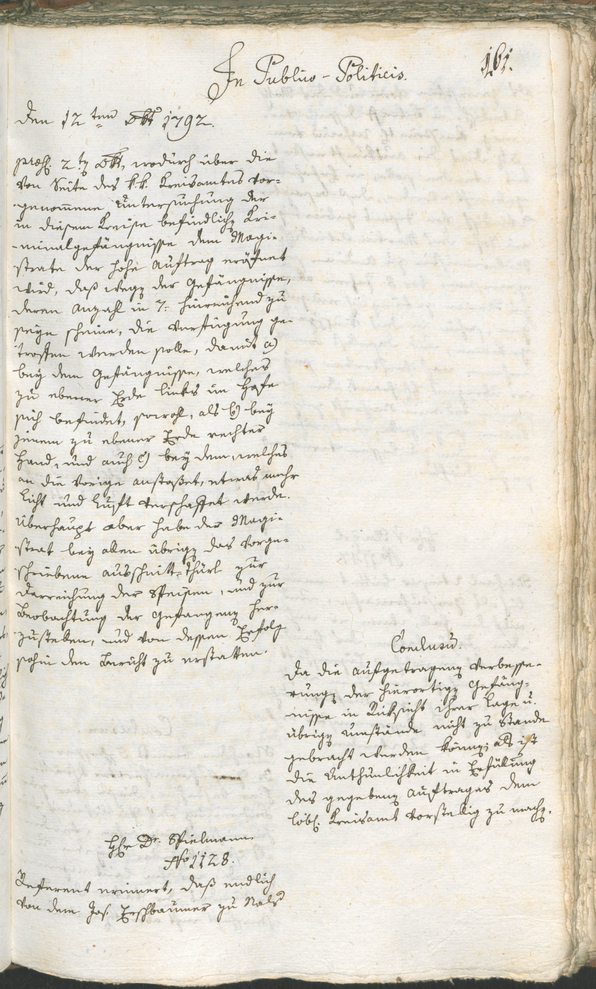 In Publico-Politicis.
161.
den 12ten 8bt 1792.
præs. 2ty 8bt, wodurch über die
von Seite des k.k. Kreisamtes vor-
genommene Untersuchung der
in diesem Kreise befindlichy Kri-
minalgefängnisse dem Magi-
strate der hohe Auftrag eröfnet
wird, daß wegy der Gefängnisse,
deren Anzahl in 7: hinreichend zu
seyn scheine, die Verfügung ge-
troffen werden solle, damit a)
bey dem Gefängnisse, welches
zu ebener Erde links im Hofe
sich befindet, sowohl, als b) bey
jenem zu ebener Erde rechter
Hand, und auch c) bey dem, welches
an die Vorige anstoßet, etwas mehr
Licht und Luft verschaffet werde.
Überhaupt aber habe der Magi-
strat bey allen übrigy das vorge-
schriebene Ausschnitt-Thürl zur
Darreichung der Speisen, und zur
Beobachtung der Gefangeny her-
zustellen, und von dessen Erfolg
sohin den Bericht zu erstatten.
Conclusum.
Da die aufgetrageny Verbesse-
rungy der hierortigy Gefäng-
nisse in Rüksicht ihrer Lage u.
übrigy Umstände nicht zu Stande
gebracht werden könny; als ist
die Unthunlichkeit in Erfüllung
des gegebeny Auftrages dem
löbl. Kreisamt vorstellig zu machy.
Hr. Dr. Spielmann.
No 1128.
Referent erinnert, daß endlich
von dem Jos. Eschbaumer zu Nals